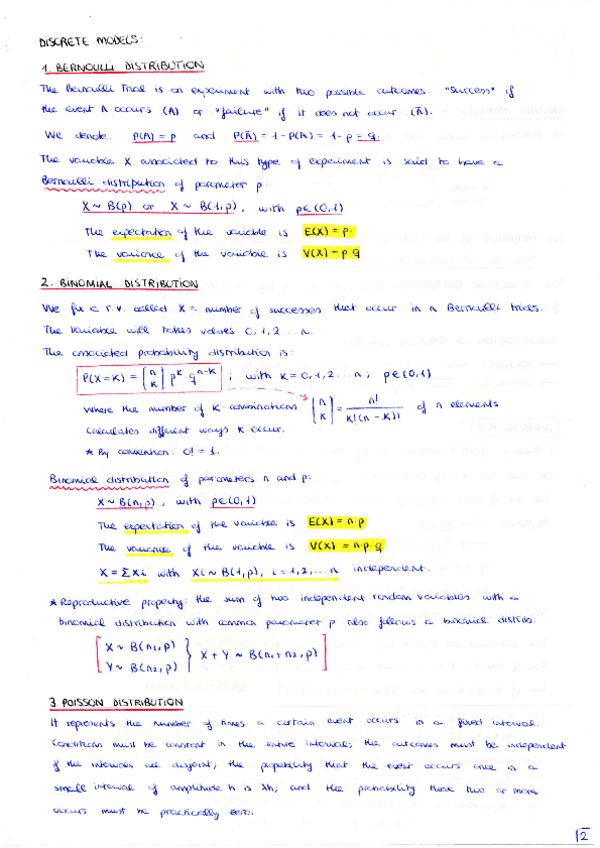 DISCRETE MODELS:
1. BERNOULLI DISTRIBUTION
The Bernoulli Trial is an experiment with two possible outcomes: "success" if
the event A occurs (A) or "failure" if it does not occur (Ā).
We denote: P(A) = p and P(Ā) = 1 - P(A) = 1 - p = q.
The variable X associated to this type of experiment is said to have a
Bernoulli distribution of parameter p:
X ~ B(p) or X ~ B(1,p), with p∈(0,1)
The expectation of the variable is E(X) = p.
The variance of the variable is V(X) = p·q
2. BINOMIAL DISTRIBUTION
We fix a r.v. called X = number of successes that occur in n Bernoulli trials.
The variable will takes values 0,1,2...n.
The associated probability distribution is:
P(X=K) = [n K] p^K · q^(n-K) ; with K = 0,1,2...n ; p∈(0,1)
Where the number of K combinations [n K] = n! / K!(n-K)! of n elements
calculates different ways K occur.
* By convention: 0! = 1.
Binomial distribution of parameters n and p:
X ~ B(n,p), with p∈(0,1)
The expectation of the variable is E(X) = n·p
The variance of the variable is V(X) = n·p·q
X = ΣXi with Xi ~ B(1,p), i = 1,2,...n independent.
* Reproductive property: the sum of two independent random variables with a
binomial distribution with common parameter p also follows a binomial distrib.
X ~ B(n1,p)
Y ~ B(n2,p) } X + Y ~ B(n1+n2,p)
3. POISSON DISTRIBUTION
It represents the number of times a certain event occurs in a fixed interval.
Conditions must be constant in the entire interval; the outcomes must be independent
if the intervals are disjoint; the probability that the event occurs once in a
small interval of amplitude h is λh; and the probability that two or more
occurs must be practically zero.
2